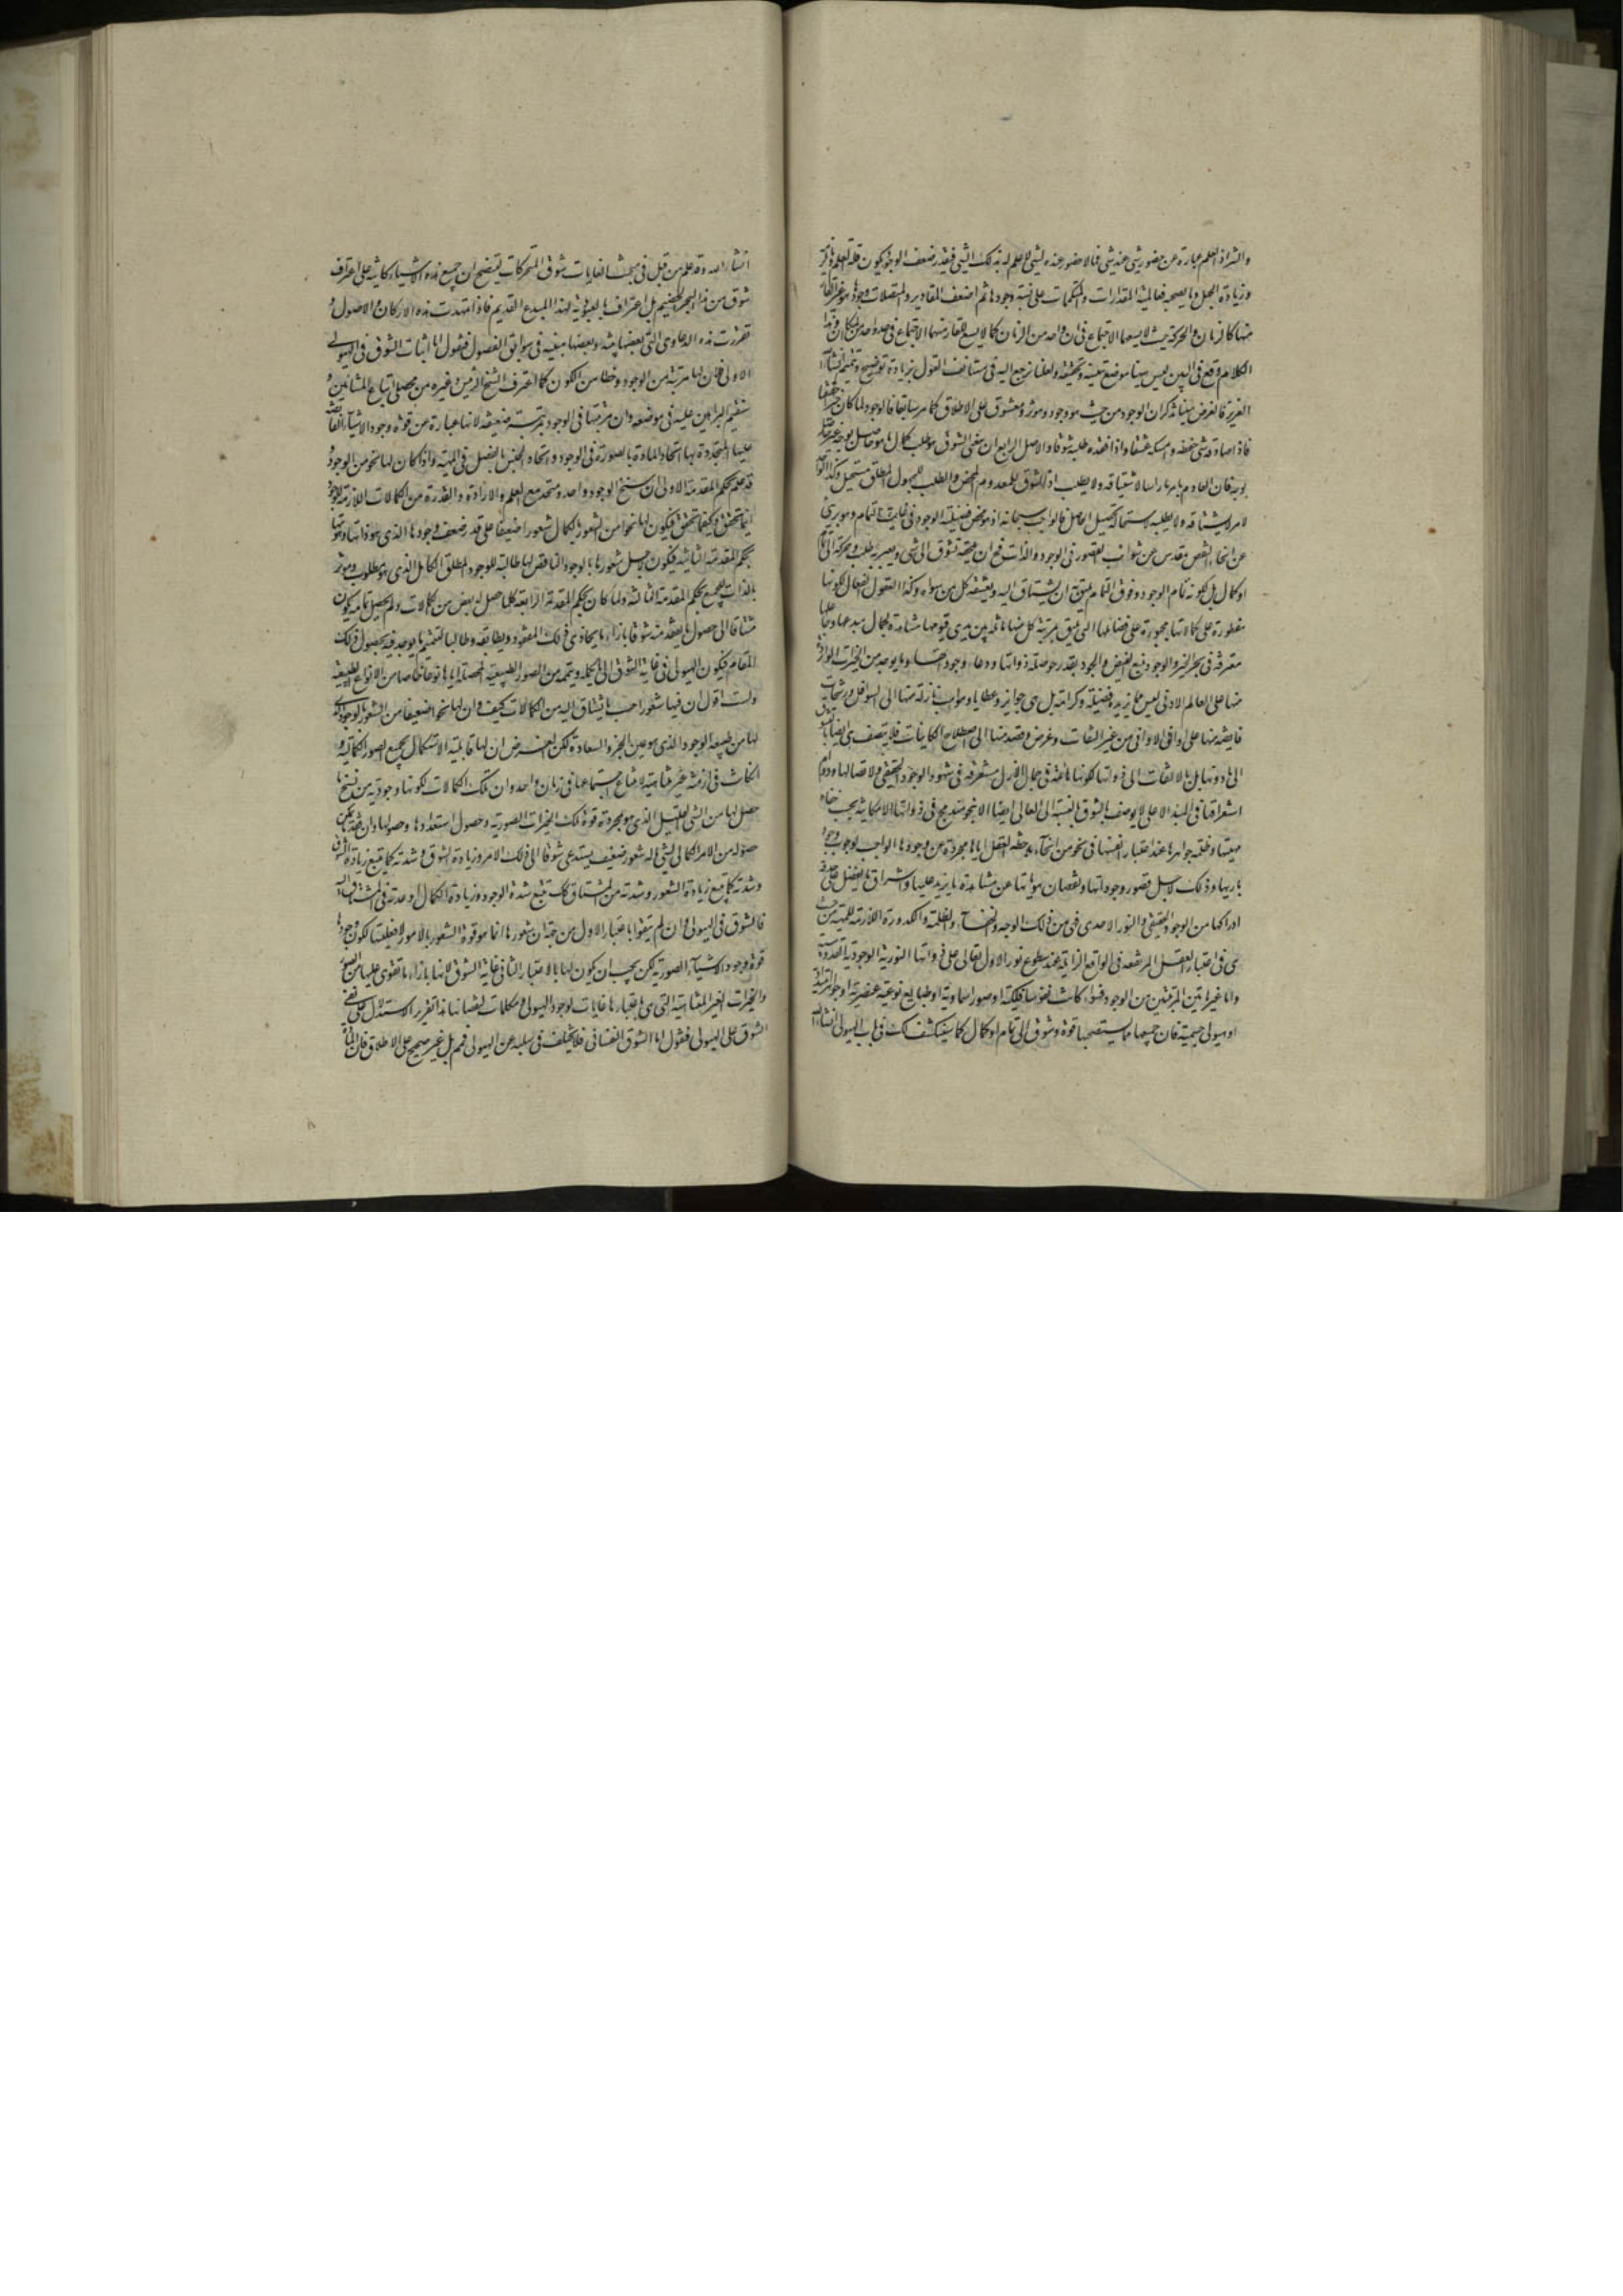 والشر اذ العلم عبارة عن حضور شئ عند شئ فما لا حضور عنده لشئ لا علم له بذلك الشئ فبقدر ضعف الوجود يكون قلة العلم
وزيادة الجهل وما يصحبه فعالمية المقدارات والمتكممات على نسبة وجودها ثم اضعف المقادير والمتصلات وجودا هو
منها كالزمان والحركة حيث لا يسعها الاجتماع في ان واحد من الزمان كما لا يسع القار منهما الاجتماع في حد واحد من المكان وهذا
الكلام وقع في البين ليس هنا موضع تبينه وتحقيقه ولعلنا نرجع اليه في مستانف القول بزيادة توضيح وتتميم انشاء الله
العزيز فالغرض هنا ذكر ان الوجود من حيث هو وجود مؤثر ومعشوق على الاطلاق كما مر سابقا فالوجود لما كان خيرا حقيقيا
فاذا صادفه شئ حفظه وامسكه عشقا واذا فقده طلبه شوقا والاصل الرابع ان معنى الشوق هو طلب كمال ما هو حاصل بوجه غير حاصل
بوجه فان العادم لامر ما راسا لا يشتاقه ولا يطلبه اذ الشوق للمعدوم المحض والطلب للمجهول المطلق مستحيل وكذا الواجد
لامر لا يشتاقه ولا يطلبه لاستحالة تحصيل الحاصل فالواجب سبحانه اذ هو محض فضيلة الوجود في غاية التمام وهو برئ
عن انحاء النقص مقدس عن شوائب القصور في الوجود والذات فمع ان يلحقه تشوق الى شئ ويعتريه طلب وحركة الى تمام
او كمال بل لكونه تام الوجود وفوق التمام يليق ان يشتاق اليه ويعشقه كل من سواه وكذا العقول الفعالة لكونها
مفطورة على كمالاتها مجبورة على فضائلها التي يليق بمرتبة كل منها ماثلة بين يدي قيومها مشاهدة لجمال مبدعها وجاعلها
مغترفة في بحر الخير والوجود منبع الفيض والجود بقدر حوصلة ذواتها ووعاء وجوداتها وما يوجد من الخيرات الواردة
منها على العالم الادنى ليس مما يزيد به فضيلة وكرامة بل هي جوائز وعطايا ومواهب نازلة منها الى السوافل ورشحات
فايضة منها على اواني الاداني من غير التفات وغرض وقصد منها الى اصطلاح الكاينات فلا يتصف هي ايضا بالشوق
الى ما دونها بل بالالتفات الى ذواتها لكونها هائمة في جمال الازل مستغرقة في شهود الوجود الحقيقي ولاتصالها ودوام
استغراقها في المبدء الاعلى لا يوصف بالشوق بالنسبة الى العالي ايضا الا بنحو مندمج في ذواتها الامكانية بحسب خفاء
مهيتها وظلمة جواهرها عند اعتبار انفسها في نحو من انحاء ملاحظة العقل اياها مجردة عن وجودها الواجب لوجوب وجود
باريها وذلك لاجل قصور وجوداتها ونقصان هوياتها عن مشاهدة ما يزيد عليها واشراق ما يفضل على حد
ادراكها من الوجود الحقيقي والنور الاحدى فهى من ذلك الوجه والخفاء والظلمة والكدورة اللازمة للمهية
هى في اعتبار العقل المرتفعة في الواقع الزايلة عند سطوع نور الاول تعالى على ذواتها النورية الوجودية
واما غير هاتين المرتبتين من الوجود فسواء كانت نفوسا فلكية او صورا سماوية او طبايع نوعية عنصرية او جواهر
او هيولى جسمية فان جميعها مما يستصحبها قوة وشوق الى تمام او كمال كما سينكشف لك في باب الهيولى انشاء الله
انشاء الله وقد علم من قبل في مبحث الغايات شوق المتحركات ليتضح ان جميع هذه الاشياء كاينة على اغتراف
شوق من هذا البحر الخضيم بل اعتراف بالعبودية لهذا المبدع القديم فاذا تمهدت هذه الاركان والاصول و
تقررت هذه الدعاوى التي بعضها بينة وبعضها مبينة في سوابق الفصول فنقول اما اثبات الشوق في الهيولى
الاولى فلان لها مرتبة من الوجود وحظا من الكون كما اعترف الشيخ الرئيس وغيره من محصلى اتباع المشائين و
سنقيم البراهين عليه في موضعه وان مرتبتها في الوجود مرتبة ضعيفة لانها عبارة عن قوة وجود الاشياء الفائضة
عليها المتحدة بها اتحاد المادة بالصورة في الوجود واتحاد الجنس بالفصل في المهية واذا كان لها نحو من الوجود و
قد علم بحكم المقدمة الاولى ان سنخ الوجود واحد ومتحد مع العلم والارادة والقدرة من الكمالات اللازمة للوجود
اينما تحقق وكيفما تحقق فيكون لها نحو من الشعور بالكمال شعورا ضعيفا على قدر ضعف وجودها الذي هو ذاتها وهويتها
بحكم المقدمة الثانية فيكون لاجل شعورها بالوجود الناقص لها طالبة للوجود المطلق الكامل الذي هو مطلوب ومؤثر
بالذات للجميع بحكم المقدمة الثالثة ولما كان بحكم المقدمة الرابعة كلما حصل له بعض من الكمالات ولم يحصل تمامه يكون
مشتاقا الى حصول ما يفقد منه شوقا بازاء ما يحاذي ذلك المفقود ويطابقه وطالبا لتتميم ما يوجد فيه بحصول ذلك
التمام فيكون الهيولى في غاية الشوق الى ما يكمله ويتممه من الصور الطبيعية المحصلة اياها نوعا خاصا من الانواع الطبيعية
ولست اقول ان فيها شعورا حسب ما يشتاق اليه من الكمالات كيف وان لها نحوا ضعيفا من الشعور بالوجود
لها من طبيعة الوجود الذي هو عين الخير والسعادة لكن الغرض ان لها قابلية الاستكمال بجميع الصور الكمالية و
ان كانت في ازمنة غير متناهية لامتناع اجتماعها في زمان واحد وان تلك الكمالات لكونها وجودية من سنخ ما
حصل لها من الشئ القليل الذي هو مجردة قوة تلك الخيرات الصورية وحصول استعدادها وصولها وان فقد ما يمكن
حصوله من الامر الكمالى لشئ له شعور ضعيف يستدعى شوقا الى ذلك الامر وزيادة الشوق وشدته كما يتبع زيادة
وشدته كما يتبع زيادة الشعور وشدته من المشتاق كك يتبع شدة الوجود وزيادة الكمال وعدته في المشتاق اليه
فالشوق في الهيولى وان لم يتقو باعتبار الاول من جهة ان شعورها انما هو قوة الشعور بالامور لا فعليتها لكون وجودها
قوة وجود الاشياء الصورية لكن يجب ان يكون لها بالاعتبار الثاني غاية الشوق لانها بازاء ما تقوى عليها من الصور
والخيرات الغير المتناهية التي هي باعتبارها غايات لوجود الهيولى ومكملات لنقصانها هذا تقرير الاستدلال على نفى
الشوق على الهيولى فنقول اما الشوق النفساني فلا يختلف في سلبه عن الهيولى فهو بل غير صحيح على الاطلاق فان